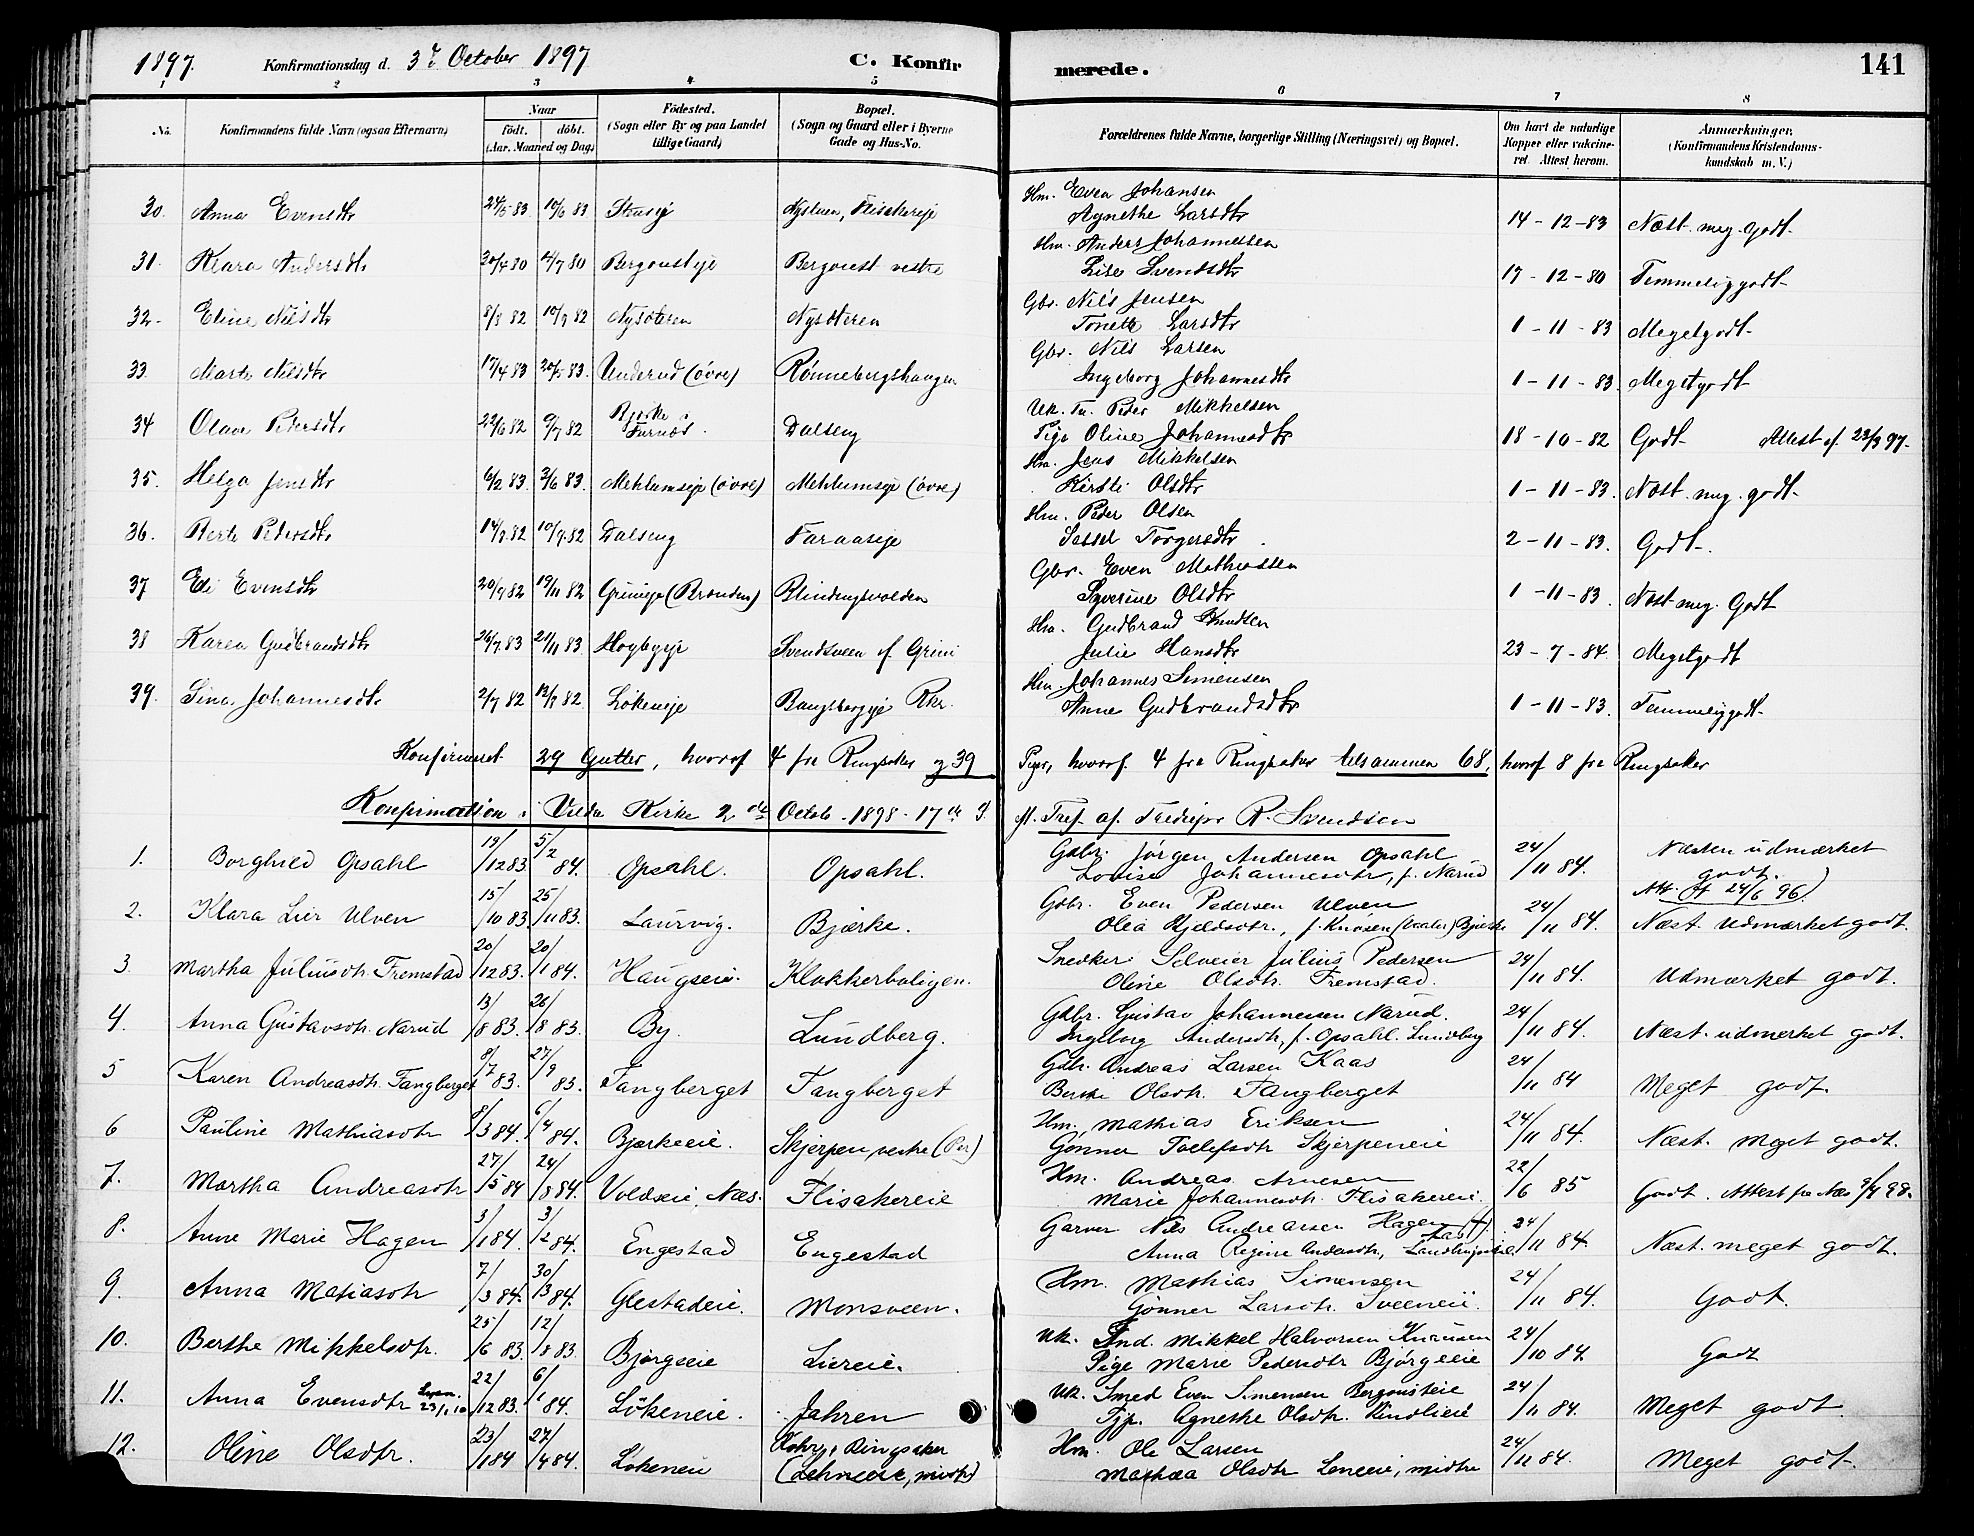 1897. Konfirmationsdag d. 3die October 1897 C. Konfirmerede. 141
1 2 3 4 5 6 7 8
No. Konfirmandens fulde Navn (ogsaa Efternavn) Naar født. døbt. (Aar, Maaned og Dag) Födested. (Sogn eller By og paa Landet tillige Gaard) Bopæl. (Sogn og Gaard eller i Byerne Gade og Hus-No. Forældrenes fulde Navne, borgerlige Stilling (Næringsvei) og Bopæl. Om havt de naturlige Kopper eller vakcineret. Attest herom. Anmærkninger. (Konfirmandens Kristendomskundskab m. V.)
30. Anna Evensdtr 24/5 83 10/6 83 Nystuen, Flisakereje Hm. Even Johansen
Agnethe Larsdtr 14-12-83 Næst. meg. godt.
31. Klara Andersdtr 20/4 80 11/7 80 Bergousteje Bergoust vestre Hm. Anders Johannessen
Lise Svendsdtr 17-12-80 Temmelig godt
32. Eline Nilsdtr 8/8 82 10/9 82 Nysæteren Nysæteren Gbr. Nils Jensen
Tonette Larsdtr 1-11-83 Meget godt
33. Marte Nilsdtr 17/4 83 20/5 83. Underud (øvre) Rønnebergshaugen Gbr. Nils Larsen
Ingeborg Johannesdtr 1-11-83. Meget godt
34 Olave Pedersdtr 22/6 82 9/7 82 Bjørke i Furnæs. Dalseng Uk. Tu. Peder Mikkelsen
Pige Oline Johannesdtr 18-10-82 Godt Attest af 23/3 97.
35. Helga Jensdtr 6/2 83. 3/6 83. Mehlumseje (øvre) Mehlumseje (øvre) Hm. Jens Mikkelsen
Kirsti Olsdtr 1-11-83. Næst. meg. godt
36. Berte Pedersdtr 14/8 82 10/9 82 Dalseng Faraaseje Hm. Peder Olsen
Sissel Torgersdtr 2-11-83. Godt.
37 Eli Evensdtr 20/9 82 19/11 82 Grinieje (Braaden) Blindingsvolden Gbr. Even Mathiessen
Syverine Olsdtr 1-11-83. Næst meg. Godt
38 Karen Gudbrandsdtr 26/9 83 21/11 83 Hogbyeje Svendsveen af Grini Hm. Gudbrand Knudsen
Julie Hansdtr 23-7-84. Meget godt
39. Sina Johannesdtr 2/7 82 13/8 82 Løkeneje Bangsbergeje Rkr. Hm. Johannes Simensen
Anne Gudbrandsdtr 1-11-83. Temmelig godt.
Konfirmeret 29 Gutter, hvoraf 4 fra Ringsaker og 39 Piger, hvoraf 4 fra Ringsaker tilsammen 68, hvoraf 8 fra Ringsaker
Konfirmation i Veldre Kirke 2den Octob. 1898 - 17de S. e. Tref. af Tredjepr R. Svendsen
1. Borghild Opsahl 19/12 83. 5/2 84. Opsahl. Opsahl. Gdbr. Jörgen Andersen Opsahl
Lovise Johannesdtr, f. Narud 24/11 84. Næsten udmærket godt.
2. Klara Lier Ulven 15/10 83 25/11 83. Laurvig. Bjærke. Gdbr. Even Pedersen Ulven
Olea Kjeldsdtr., f. Knøsen (Vaaler) Bjærke 24/11 84. Att. af 24/6 96) Næst. udmærket godt.
3. Martha Juliusdtr. Fremstad 20/12 83. 20/1 84. Haugseie. Klokkerboligen. Snedker Selveier Julius Pedersen
Oline Olsdtr. Fremstad. 24/11 84. Udmærket godt.
4. Anna Gustavsdtr. Narud 13/8 83. 26/8 83. By. Lundberg. Gdbr. Gustav Johannesen Narud.
Ingeborg Andersdtr, f. Opsahl. Lundberg 24/11 84. Næst. udmerket godt.
5 Karen Andreasdtr. Tangberget 8/7 83. 27/9 83. Tangberget Tangberget Gdbr. Andreas Larsen Kaas
Berthe Olsdtr. Tangberget 24/11 84 Meget godt.
6 Pauline Mathiasdtr 8/3 84. 6/4 84. Bjerkeeie. Skjerpen, vestre Hm. Mathias Eriksen
Gonner Tollefsdtr Skjerpeneie 24/11 84. Næst. meget godt.
7. Martha Andreasdtr 27/5 84 24/8 84. Voldseie, Næs. Flisakereie Hm. Andreas Arnesen
Marie Johannesdtr. Flisakereie. 22/6 85 Godt. Attest fra Næs 9/9 98.
8. Anne Marie Hagen 3/1 84. 3/2 84. Engestad Engestad Garver Nils Andreassen Hagen (†)
Anna Regine Andersdtr, 24/11 84. Næst. meget godt.
9. Anna Matiasdtr 7/3 84. 30/3 84. Glestadeie. Monsveen. Hm. Mathias Simensen
Gönner Larsdtr. Sveeneie. 24/11 84. Godt.
10. Berthe Mikkelsdtr. 25/6 83. 12/8 83. Bjørgeeie Liereie. Uk. Ind. Mikkel Halvorsen Knausen
Pige Marie Pedersdtr Bjørgeeie 24/10 84. Godt
11. Anna Evensdtr 22/12 83. 6/1 84. Lökeneie. Jahren Uk. Smed Even Simensen Bergousteie
Tjp. Agnethe Olsdtr. 24/11 84. Meget godt.
12. Oline Olsdtr. 23/1 84 27/4 84. Lökeneie Ringsaker (Lehneeie, midtre) Hm. Ole Larsen
Mathea Olsdtr Leneeie, midtre 24/11 84. Meget godt.